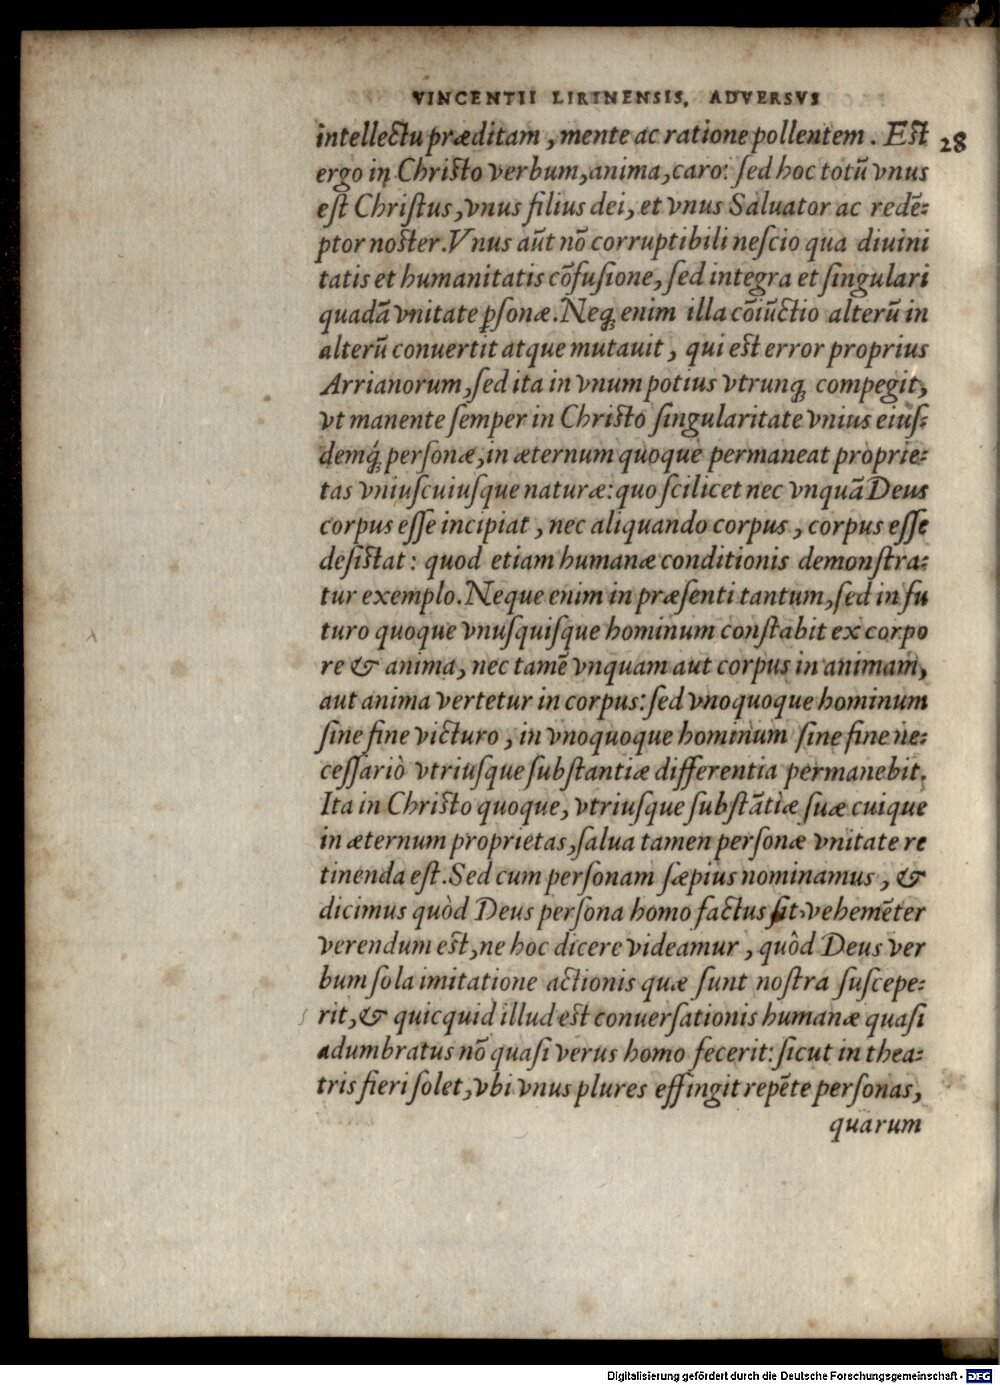 VINCENTII LIRINENSIS, ADVERSVS
intellectu præditam, mente ac ratione pollentem. Est 28
ergo in Christo verbum, anima, caro: sed hoc totũ vnus
est Christus, vnus filius dei, et vnus Saluator ac redẽ-
ptor noster. Vnus aũt nõ corruptibili nescio qua diuini
tatis et humanitatis cõfusione, sed integra et singulari
quadã vnitate ꝑsonæ. Neqꝫ enim illa cõiũctio alterũ in
alterũ conuertit atque mutauit, qui est error proprius
Arrianorum, sed ita in vnum potius vtrunqꝫ compegit,
vt manente semper in Christo singularitate vnius eius-
demq́ꝫ personæ, in æternum quoque permaneat proprie-
tas vniuscuiusque naturæ: quo scilicet nec vnquã Deus
corpus esse incipiat, nec aliquando corpus, corpus esse
desistat: quod etiam humanæ conditionis demonstra-
tur exemplo. Neque enim in præsenti tantum, sed in fu
turo quoque vnusquisque hominum constabit ex corpo
re & anima, nec tamẽ vnquam aut corpus in animam,
aut anima vertetur in corpus: sed vnoquoque hominum
sine fine victuro, in vnoquoque hominum sine fine ne-
cessariò vtriusque substantiæ differentia permanebit.
Ita in Christo quoque, vtriusque substãtiæ suæ cuique
in æternum proprietas, salua tamen personæ vnitate re
tinenda est. Sed cum personam sæpius nominamus, &
dicimus quòd Deus persona homo factus sit, vehemẽter
verendum est, ne hoc dicere videamur, quòd Deus ver
bum sola imitatione actionis quæ sunt nostra suscepe-
rit, & quicquid illud est conuersationis humanæ quasi
adumbratus nõ quasi verus homo fecerit: sicut in thea-
tris fieri solet, vbi vnus plures effingit repẽte personas,
quarum
Digitalisierung gefördert durch die Deutsche Forschungsgemeinschaft - DFG